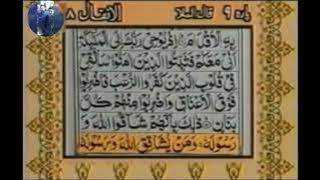 پارہ ۹ قال الملا
الانفال ۸
بِهِ الْاَقْدَامَ اِذْ يُوْحِيْ رَبُّكَ اِلَى الْمَلٰٓئِكَةِ
اَنِّيْ مَعَكُمْ فَثَبِّتُوا الَّذِيْنَ اٰمَنُوْا سَاُلْقِيْ
فِيْ قُلُوْبِ الَّذِيْنَ كَفَرُوا الرُّعْبَ فَاضْرِبُوْا
فَوْقَ الْاَعْنَاقِ وَاضْرِبُوْا مِنْهُمْ كُلَّ
بَنَانٍ ذٰلِكَ بِاَنَّهُمْ شَآقُّوا اللّٰهَ وَ
رَسُوْلَهٗ وَمَنْ يُّشَاقِقِ اللّٰهَ وَرَسُوْلَهٗ